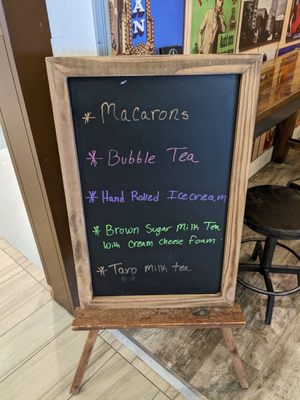 AN
* Macarons
* Bubble Tea
* Hand Rolled Icecream
* Brown Sugar Milk Tea
with Cream Cheese Foam
* Taro Milk tea